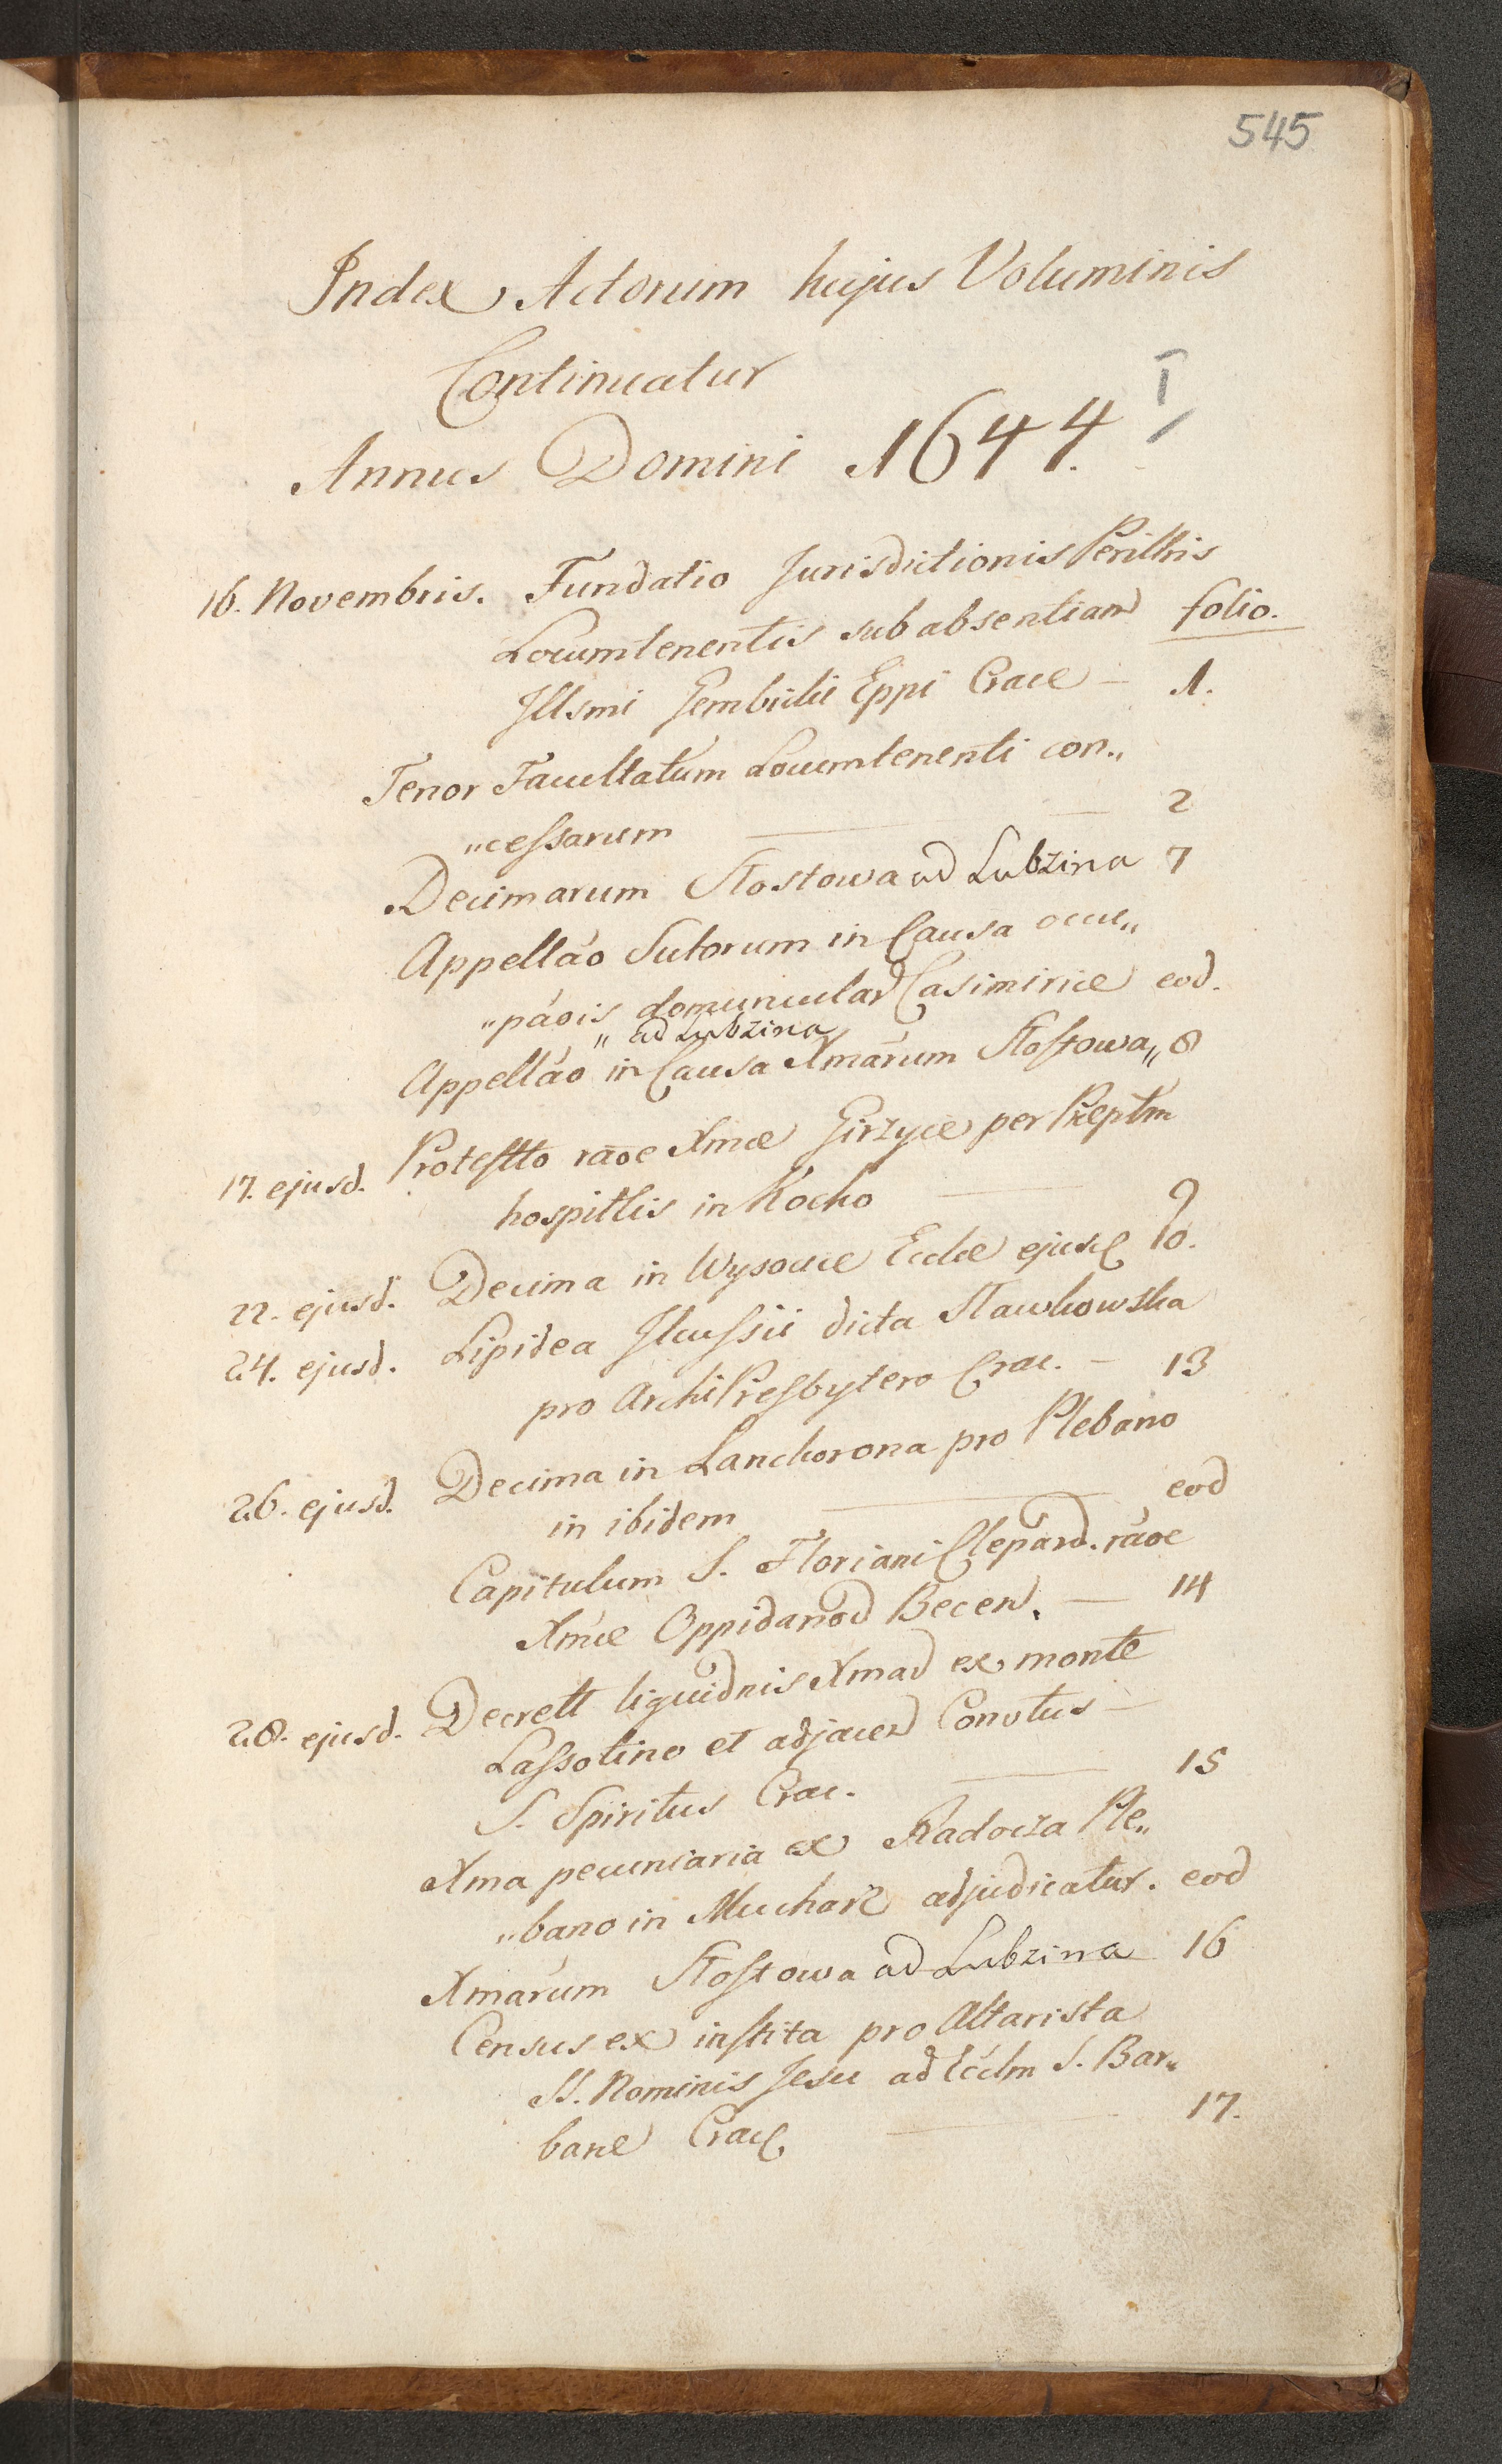 545
Index Actorum hujus Voluminis
Continuatur
Annus Domini 1644. I
16. Novembris. Fundatio Jurisdictionis Perillris
Locumtenentis sub absentiam folio.
Illsmi Gembicki Eppi Crace – 1.
Tenor Facultatum Locumtenenti con„
„cessarum — 2
Decimarum Stostowa ad Lubzina 7
Appellao Sutorum in Causa occu„
„paois domuncular Casimiriae eod.
„ ad Lubzina
Appellao in Causa Xmarum Stostowa„ 8
17. ejusd. Protestto raoe Xmae Girzyce per Praeptm
hospitlis in Kocko — 9
22. ejusd. Decima in Wysocice Ecclae ejusd 10.
24. ejusd. Lipidea Ilcussii dicta Stawkowska
pro ArchiPresbytero Crac. – 13
26. ejusd. Decima in Lanckorona pro Plebano
in ibidem — eod
Capitulum S. Floriani Clepard. raoe
Xmae Oppidanod Becen. — 14
28. ejusd. Decrett liquidnis Xmad ex monte
Lassotino et adjacen Convtus –
S. Spiritus Crac. — 15
Xma pecuniaria ex Radocza Ple„
„bano in Mucharz adjudicatur. eod
Xmarum Stostowa ad Lubzina 16
Census ex instita pro Altarista
SS. Nominis Jesu ad Ecclm S. Bar„
barae Crac — 17.